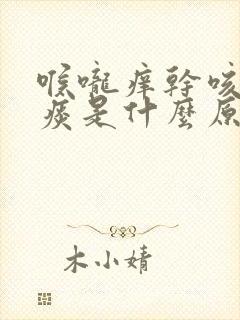 喉嚨痒幹咳
痰是什麼原
木小婧